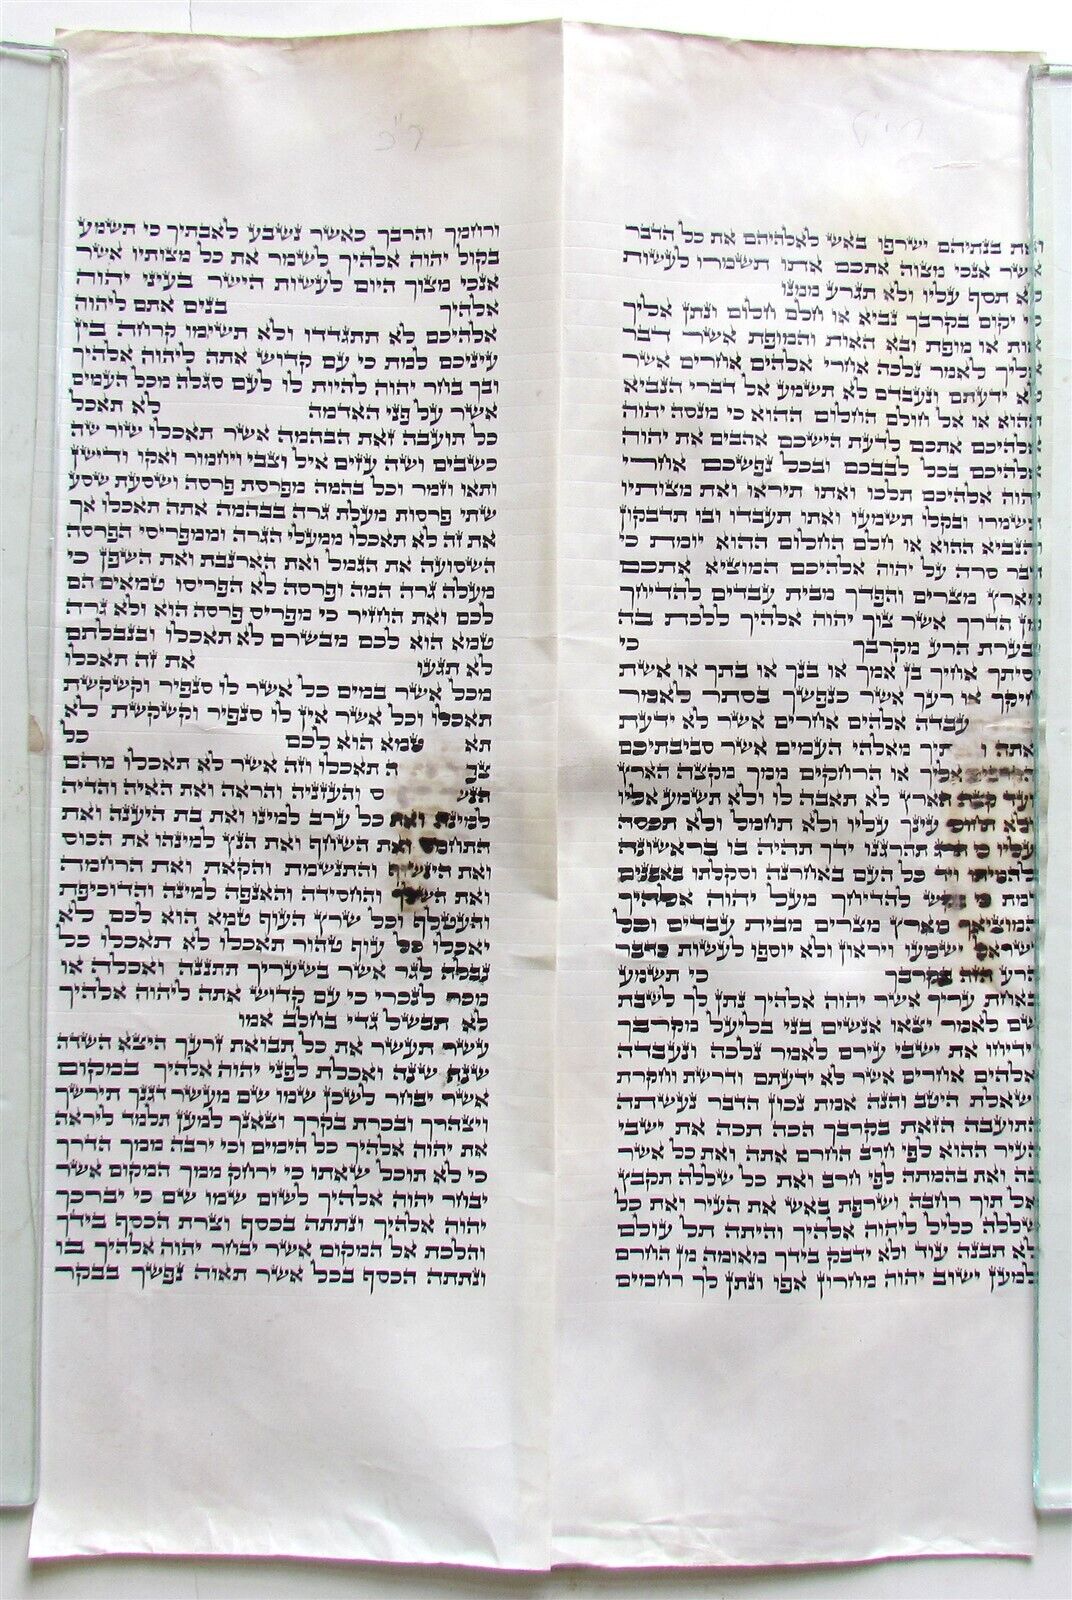 ואת בנתיהם ישרפו באש לאלהיהם את כל הדבר
אשר אנכי מצוה אתכם אתו תשמרו לעשות
לא תסף עליו ולא תגרע ממנו
כי יקום בקרבך נביא או חלם חלום ונתן אליך
אות או מופת ובא האות והמופת אשר דבר
אליך לאמר נלכה אחרי אלהים אחרים אשר
לא ידעתם ונעבדם לא תשמע אל דברי הנביא
ההוא או אל חולם החלום ההוא כי מנסה יהוה
אלהיכם אתכם לדעת הישכם אהבים את יהוה
אלהיכם בכל לבבכם ובכל נפשכם אחרי
יהוה אלהיכם תלכו ואתו תיראו ואת מצותיו
תשמרו ובקלו תשמעו ואתו תעבדו ובו תדבקון
והנביא ההוא או חלם החלום ההוא יומת כי
דבר סרה על יהוה אלהיכם המוציא אתכם
מארץ מצרים והפדך מבית עבדים להדיחך
מן הדרך אשר צוך יהוה אלהיך ללכת בה
ובערת הרע מקרבך כי
יסיתך אחיך בן אמך או בנך או בתך או אשת
חיקך או רעך אשר כנפשך בסתר לאמר
עבדה אלהים אחרים אשר לא ידעת
אתה תיך מאלהי העמים אשר סביבתיכם
הקרבים אליך או הרחקים ממך מקצה הארץ
ועד קצה הארץ לא תאבה לו ולא תשמע אליו
ולא תחוס עינך עליו ולא תחמל ולא תכסה
עליו תהרגנו ידך תהיה בו בראשונה
להמיתו ויד כל העם באחרנה וסקלתו באבנים
ומת כי בקש להדיחך מעל יהוה אלהיך
המוציאך מארץ מצרים מבית עבדים וכל
ישראל ישמעו ויראון ולא יוספו לעשות כדבר
הרע הזה בקרבך כי תשמע
באחת עריך אשר יהוה אלהיך נתן לך לשבת
שם לאמר יצאו אנשים בני בליעל מקרבך
וידיחו את ישבי עירם לאמר נלכה ונעבדה
אלהים אחרים אשר לא ידעתם ודרשת וחקרת
ושאלת היטב והנה אמת נכון הדבר נעשתה
התועבה הזאת בקרבך הכה תכה את ישבי
העיר ההוא לפי חרב החרם אתה ואת כל אשר
בה ואת בהמתה לפי חרב ואת כל שללה תקבץ
אל תוך רחבה ושרפת באש את העיר ואת כל
שללה כליל ליהוה אלהיך והיתה תל עולם
לא תבנה עוד ולא ידבק בידך מאומה מן החרם
למען ישוב יהוה מחרון אפו ונתן לך רחמים
ורחמך והרבך כאשר נשבע לאבתיך כי תשמע
בקול יהוה אלהיך לשמר את כל מצותיו אשר
אנכי מצוך היום לעשות הישר בעיני יהוה
אלהיך בנים אתם ליהוה
אלהיכם לא תתגדדו ולא תשימו קרחה בין
עיניכם למת כי עם קדוש אתה ליהוה אלהיך
ובך בחר יהוה להיות לו לעם סגלה מכל העמים
אשר על פני האדמה לא תאכל
כל תועבה זאת הבהמה אשר תאכלו שור שה
כשבים ושה עזים איל וצבי ויחמור ואקו ודישן
ותאו וזמר וכל בהמה מפרסת פרסה ושסעת שסע
שתי פרסות מעלת גרה בבהמה אתה תאכלו אך
את זה לא תאכלו ממעלי הגרה וממפריסי הפרסה
השסועה את הגמל ואת הארנבת ואת השפן כי
מעלה גרה המה ופרסה לא הפריסו טמאים הם
לכם ואת החזיר כי מפריס פרסה הוא ולא גרה
טמא הוא לכם מבשרם לא תאכלו ובנבלתם
לא תגעו את זה תאכלו
מכל אשר במים כל אשר לו סנפיר וקשקשת
תאכלו וכל אשר אין לו סנפיר וקשקשת לא
תא טמא הוא לכם כל
צפ ה תאכלו וזה אשר לא תאכלו מהם
הנש ס והעזניה והראה ואת האיה והדיה
למינה ואת כל ערב למינו ואת בת היענה ואת
התחמס ואת השחף ואת הנץ למינהו את הכוס
ואת הינשוף והתנשמת והקאת ואת הרחמה
ואת השלך והחסידה והאנפה למינה והדוכיפת
והעטלף וכל שרץ העוף טמא הוא לכם לא
יאכלו כל עוף טהור תאכלו לא תאכלו כל
נבלה לגר אשר בשעריך תתננה ואכלה או
מכר לנכרי כי עם קדוש אתה ליהוה אלהיך
לא תבשל גדי בחלב אמו
עשר תעשר את כל תבואת זרעך היצא השדה
שנה שנה ואכלת לפני יהוה אלהיך במקום
אשר יבחר לשכן שמו שם מעשר דגנך תירשך
ויצהרך ובכרת בקרך וצאנך למען תלמד ליראה
את יהוה אלהיך כל הימים וכי ירבה ממך הדרך
כי לא תוכל שאתו כי ירחק ממך המקום אשר
יבחר יהוה אלהיך לשום שמו שם כי יברכך
יהוה אלהיך ונתתה בכסף וצרת הכסף בידך
והלכת אל המקום אשר יבחר יהוה אלהיך בו
ונתתה הכסף בכל אשר תאוה נפשך בבקר